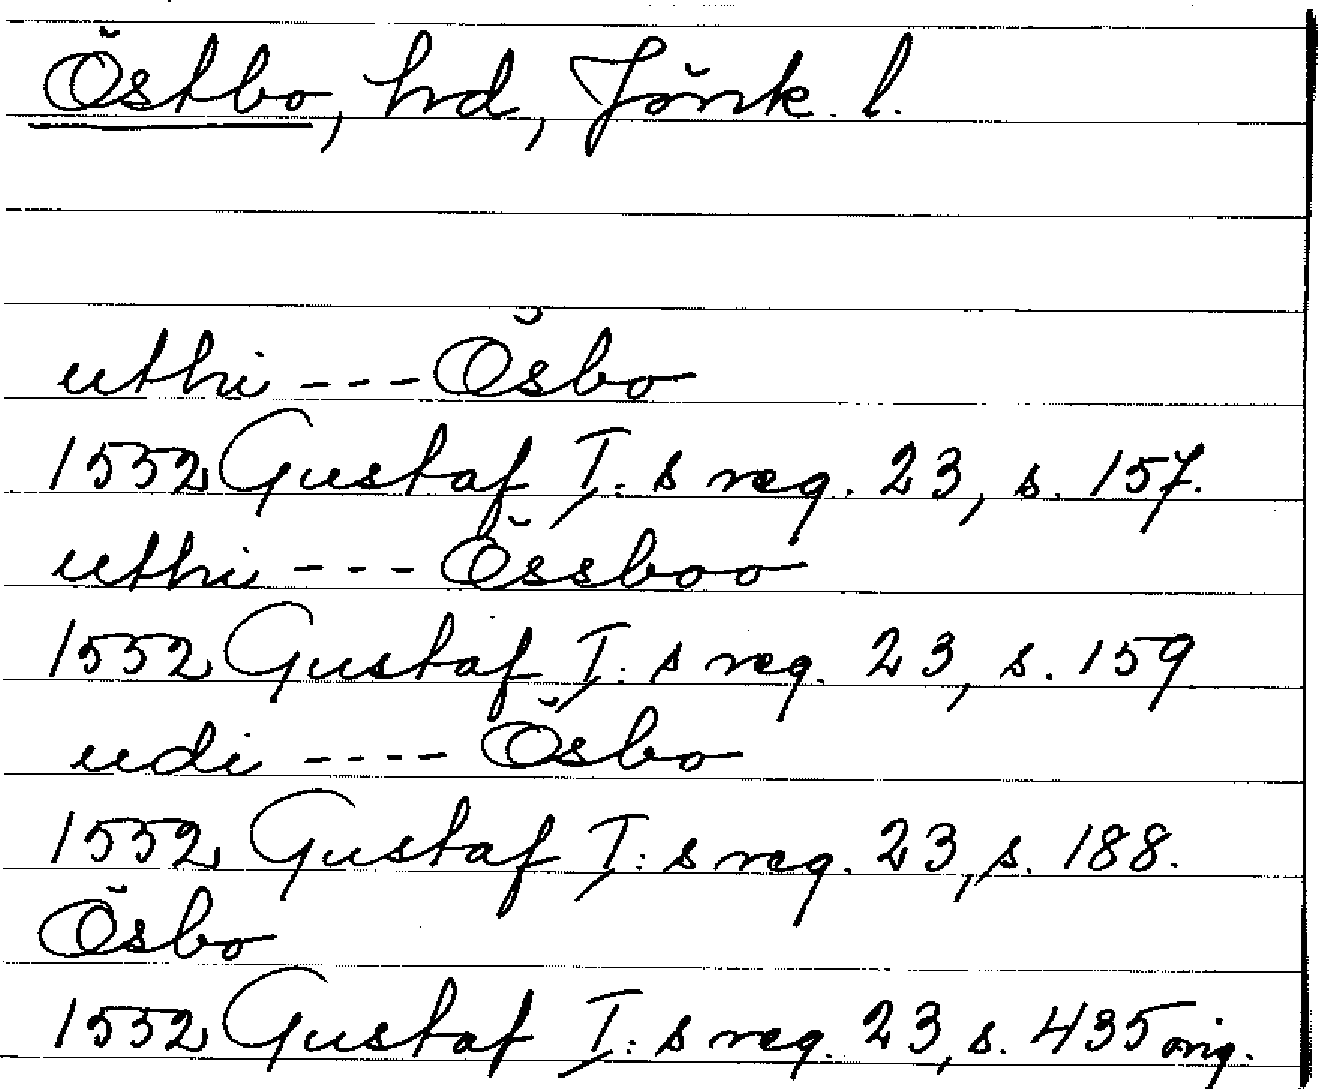 Östbo, hd, Jönk. l.
uthi --- Ösbo
1552 Gustaf I:s reg. 23, s. 157.
uthi --- Össboo
1552 Gustaf I:s reg. 23, s. 159
udi ---- Ösbo
1552 Gustaf I:s reg. 23, s. 188.
Ösbo
1552 Gustaf I:s reg. 23, s. 435 orig.